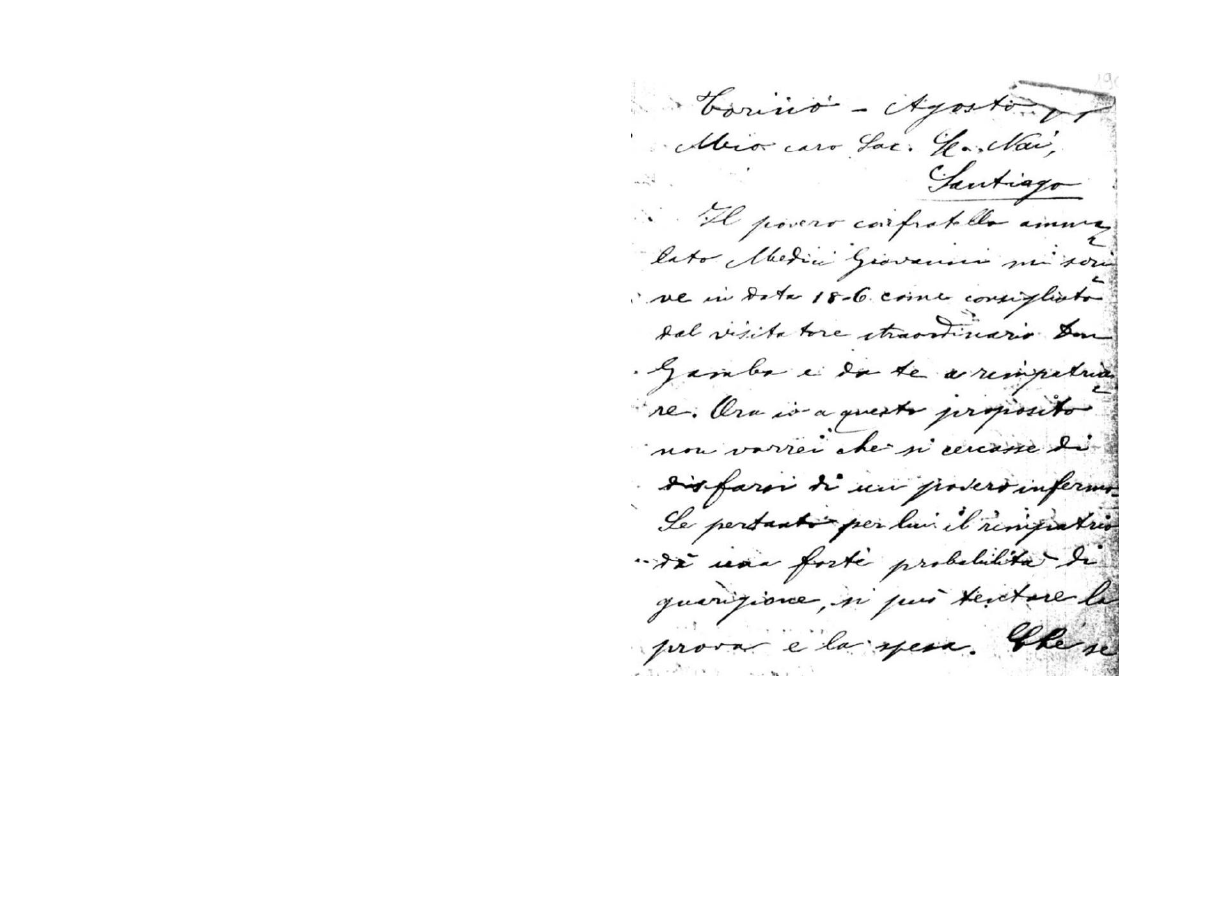 Torino - Agosto
Mio caro Sac. L. Nai,
Santiago
Il povero confratello amma
lato Medici Giovanni mi scri
ve in data 18-6 come consigliato
dal visitatore straordinario Don
Gamba e da te a rimpatria
re. Ora io a questo proposito
non vorrei che si cercasse di
disfarsi di un povero infermo.
Se pertanto per lui il rimpatrio
dà una forte probabilità di
guarigione, si può tentare la
prova e la spesa. Che se